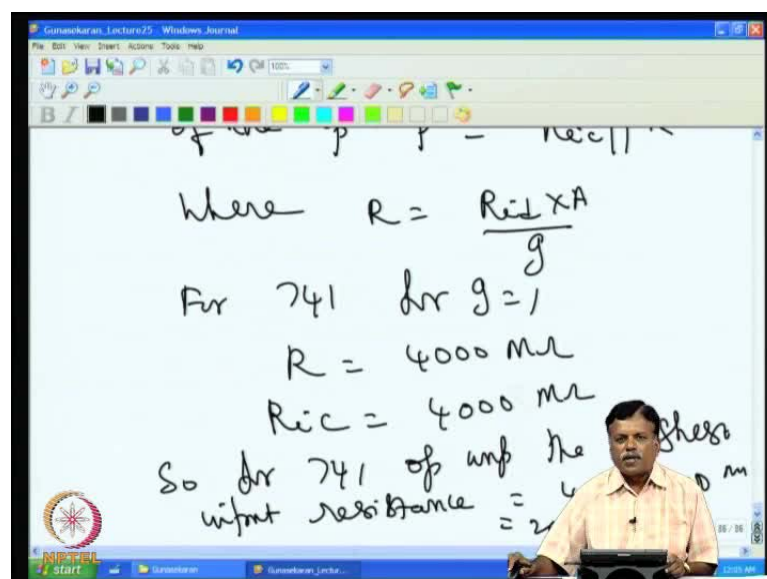 Gunasekaran_Lecture25 - Windows Journal
File Edit View Insert Actions Tools Help
100%
B I
of the i/p = Ric || R
Where R = Rid × A
g
For 741 for g = 1
R = 4000 MΩ
Ric = 4000 MΩ
So for 741 op amp the
input resistance =
=
36 / 36
NPTEL
start
Gunasekaran
Gunasekaran_Lectur...
12:05 AM